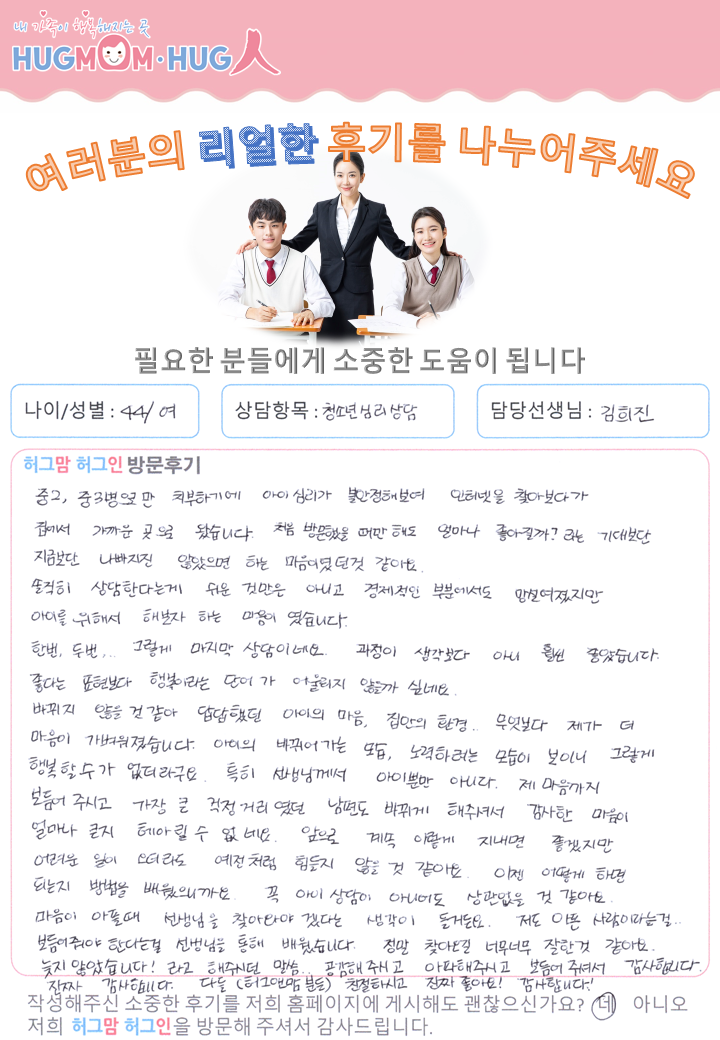 내 가족이 행복해지는 곳
HUGMOM·HUG人
여러분의 리얼한 후기를 나누어주세요
필요한 분들에게 소중한 도움이 됩니다
나이/성별 : 44/ 여
상담항목 : 청소년심리상담
담당선생님 : 김희진
허그맘 허그인 방문후기
중2, 중3병으로만 치부하기에 아이 심리가 불안정해보여 인터넷을 찾아보다가
집에서 가까운 곳으로 왔습니다. 처음 방문했을 때만 해도 얼마나 좋아질까? 라는 기대보단
지금보단 나빠지진 않았으면 하는 마음이였던것 같아요.
솔직히 상담한다는게 쉬운 것만은 아니고 경제적인 부분에서도 망설여졌지만
아이를 위해서 해보자 하는 마음이 였습니다.
한번, 두번,.. 그렇게 마지막 상담이네요. 과정이 생각보다 아니 훨씬 좋았습니다.
좋다는 표현보다 행복이라는 단어가 어울리지 않을까 싶네요.
바뀌지 않을 것 같아 답답했던 아이의 마음, 집안의 환경.. 무엇보다 제가 더
마음이 가벼워졌습니다. 아이의 바뀌어가는 모습, 노력하려는 모습이 보이니 그렇게
행복할수가 없더라구요. 특히 선생님께서 아이뿐만 아니다. 제 마음까지
보듬어 주시고 가장 큰 걱정거리였던 남편도 바뀌게 해주셔서 감사한 마음이
얼마나 큰지 헤아릴 수 없네요. 앞으로 계속 이렇게 지내면 좋겠지만
어려운 일이 오더라도 예전처럼 힘들지 않을 것 같아요. 이젠 어떻게 하면
되는지 방법을 배웠으니까요. 꼭 아이 상담이 아니어도 상관없을 것 같아요.
마음이 아플때 선생님을 찾아와야 겠다는 생각이 들거든요. 저도 아픈 사람이라는걸..
보듬어줘야 한다는걸 선생님을 통해 배웠습니다. 정말 찾아오길 너무너무 잘한것 같아요.
늦지 않았습니다! 라고 해주시던 말씀.. 공감해주시고 아파해주시고 보듬어 주셔서 감사합니다.
진짜 감사합니다. 다들 (허그앤맘 분들) 친절하시고 진짜 좋아요! 감사합니다!
작성해주신 소중한 후기를 저희 홈페이지에 게시해도 괜찮으신가요? 네 아니오
저희 허그맘 허그인을 방문해 주셔서 감사드립니다.